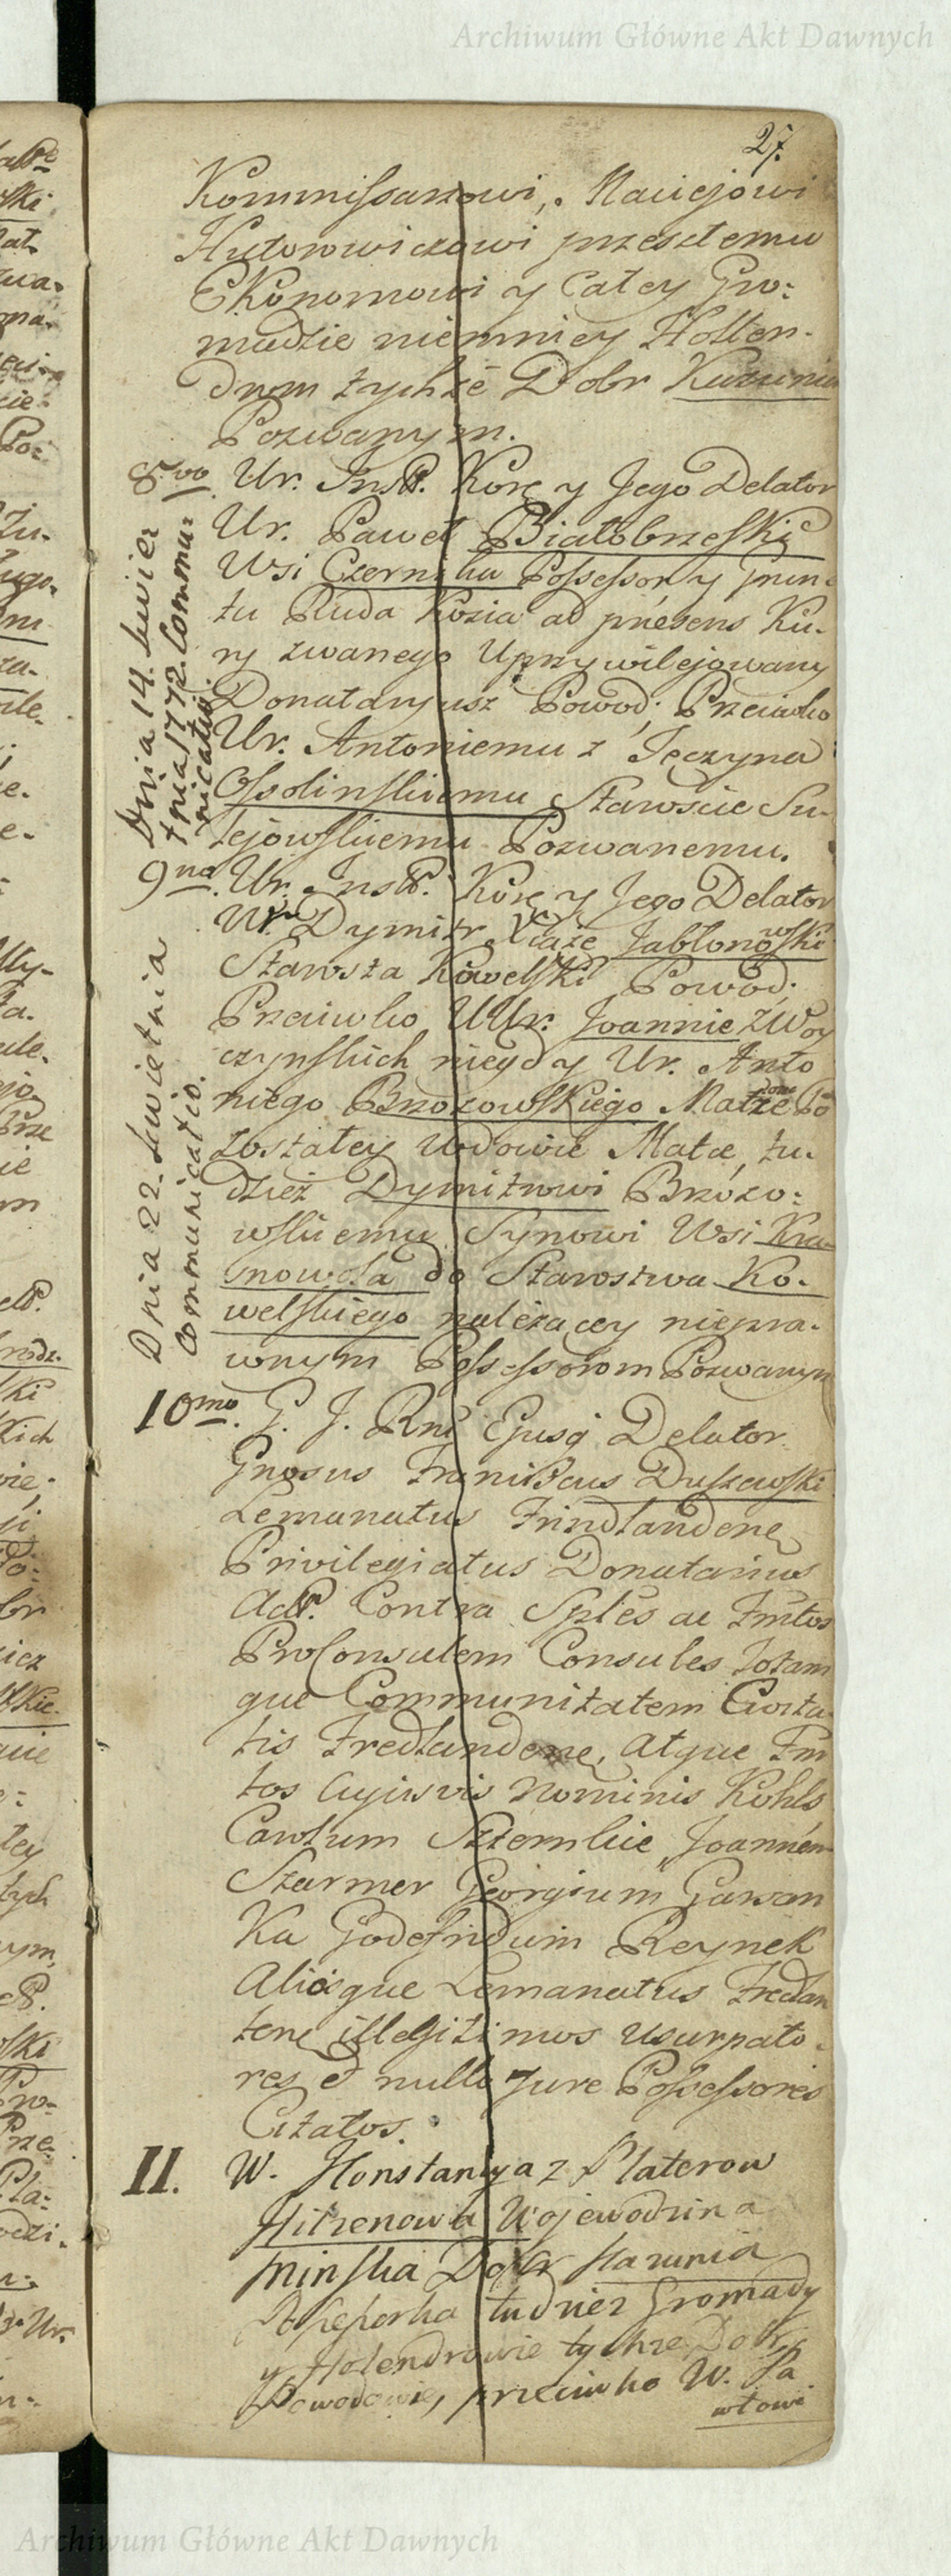 Archiwum Główne Akt Dawnych
27.
Kommissarzowi, Maciejowi
Hutorowiczowi przeszłemu
Ekonomowi y Całey Gro:
madzie niemniey Hollen-
drom tychże Dobr
Pozwanym.
8vo Ur. Inst. Kore y Jego Delator
Ur. Paweł Białobrzeski
Wsi Possessor y grun:
tu Ruda Kozia ad præsens Ku-
ry zwanego Uprzywilejowany
Donataryusz Powod; Przeciwko
Ur. Antoniemu z Tęczyna
Ossolinskiemu Staroscie Su-
lejowskiemu Pozwanemu.
Dnia 14. kwie:
tnia 1772. Commu:
nicatio.
9no. Ur. Inst. Kore y Jego Delator
Ur. Dymitr Xiąże Jabłonowski
Starosta Kowelski Powod;
Przeciwko UUr. Joannie z Woy
czynskich niegdy Ur. Anto
niego Brzozowskiego Małżonce Po
zostałey Wdowie Matce, tu-
dzież Dymitrowi Brzozo:
wskiemu Synowi Wsi Kra
snowola do Starostwa Ko-
welskiego należącey niepra-
wnym Possessorom Pozwanym
Dnia 22. kwietnia
Communicatio.
10mo. G. I. Rni Ejusq Delator
Gnosus Franiscus
Lemanatus Frindlandene
Privilegiatus Donatarius
Act. Contra Splés ac Fmtos
ProConsulem Consules Totam
que Communitatem Civita
tis Fredlandene, Atque Fm
tos Cujusvis Nominis Kohls
Carolum Sztemkie Joannem
Szarmer Georgium Gawan
Ka Godefridum Reynek
Aliosque Lemanatus Fredlan
tene illegitimos Usurpato-
res et nullo Jure Possessores
Citatos.
11. W. Konstancya z Platerow
Hilzenowa Wojewodzina
Minska Dobr
Possessorka tudziez Gromady
y Holendrowie tychze Dobr,
Powodowie, przeciwko W. Pa
włowi
Archiwum Główne Akt Dawnych